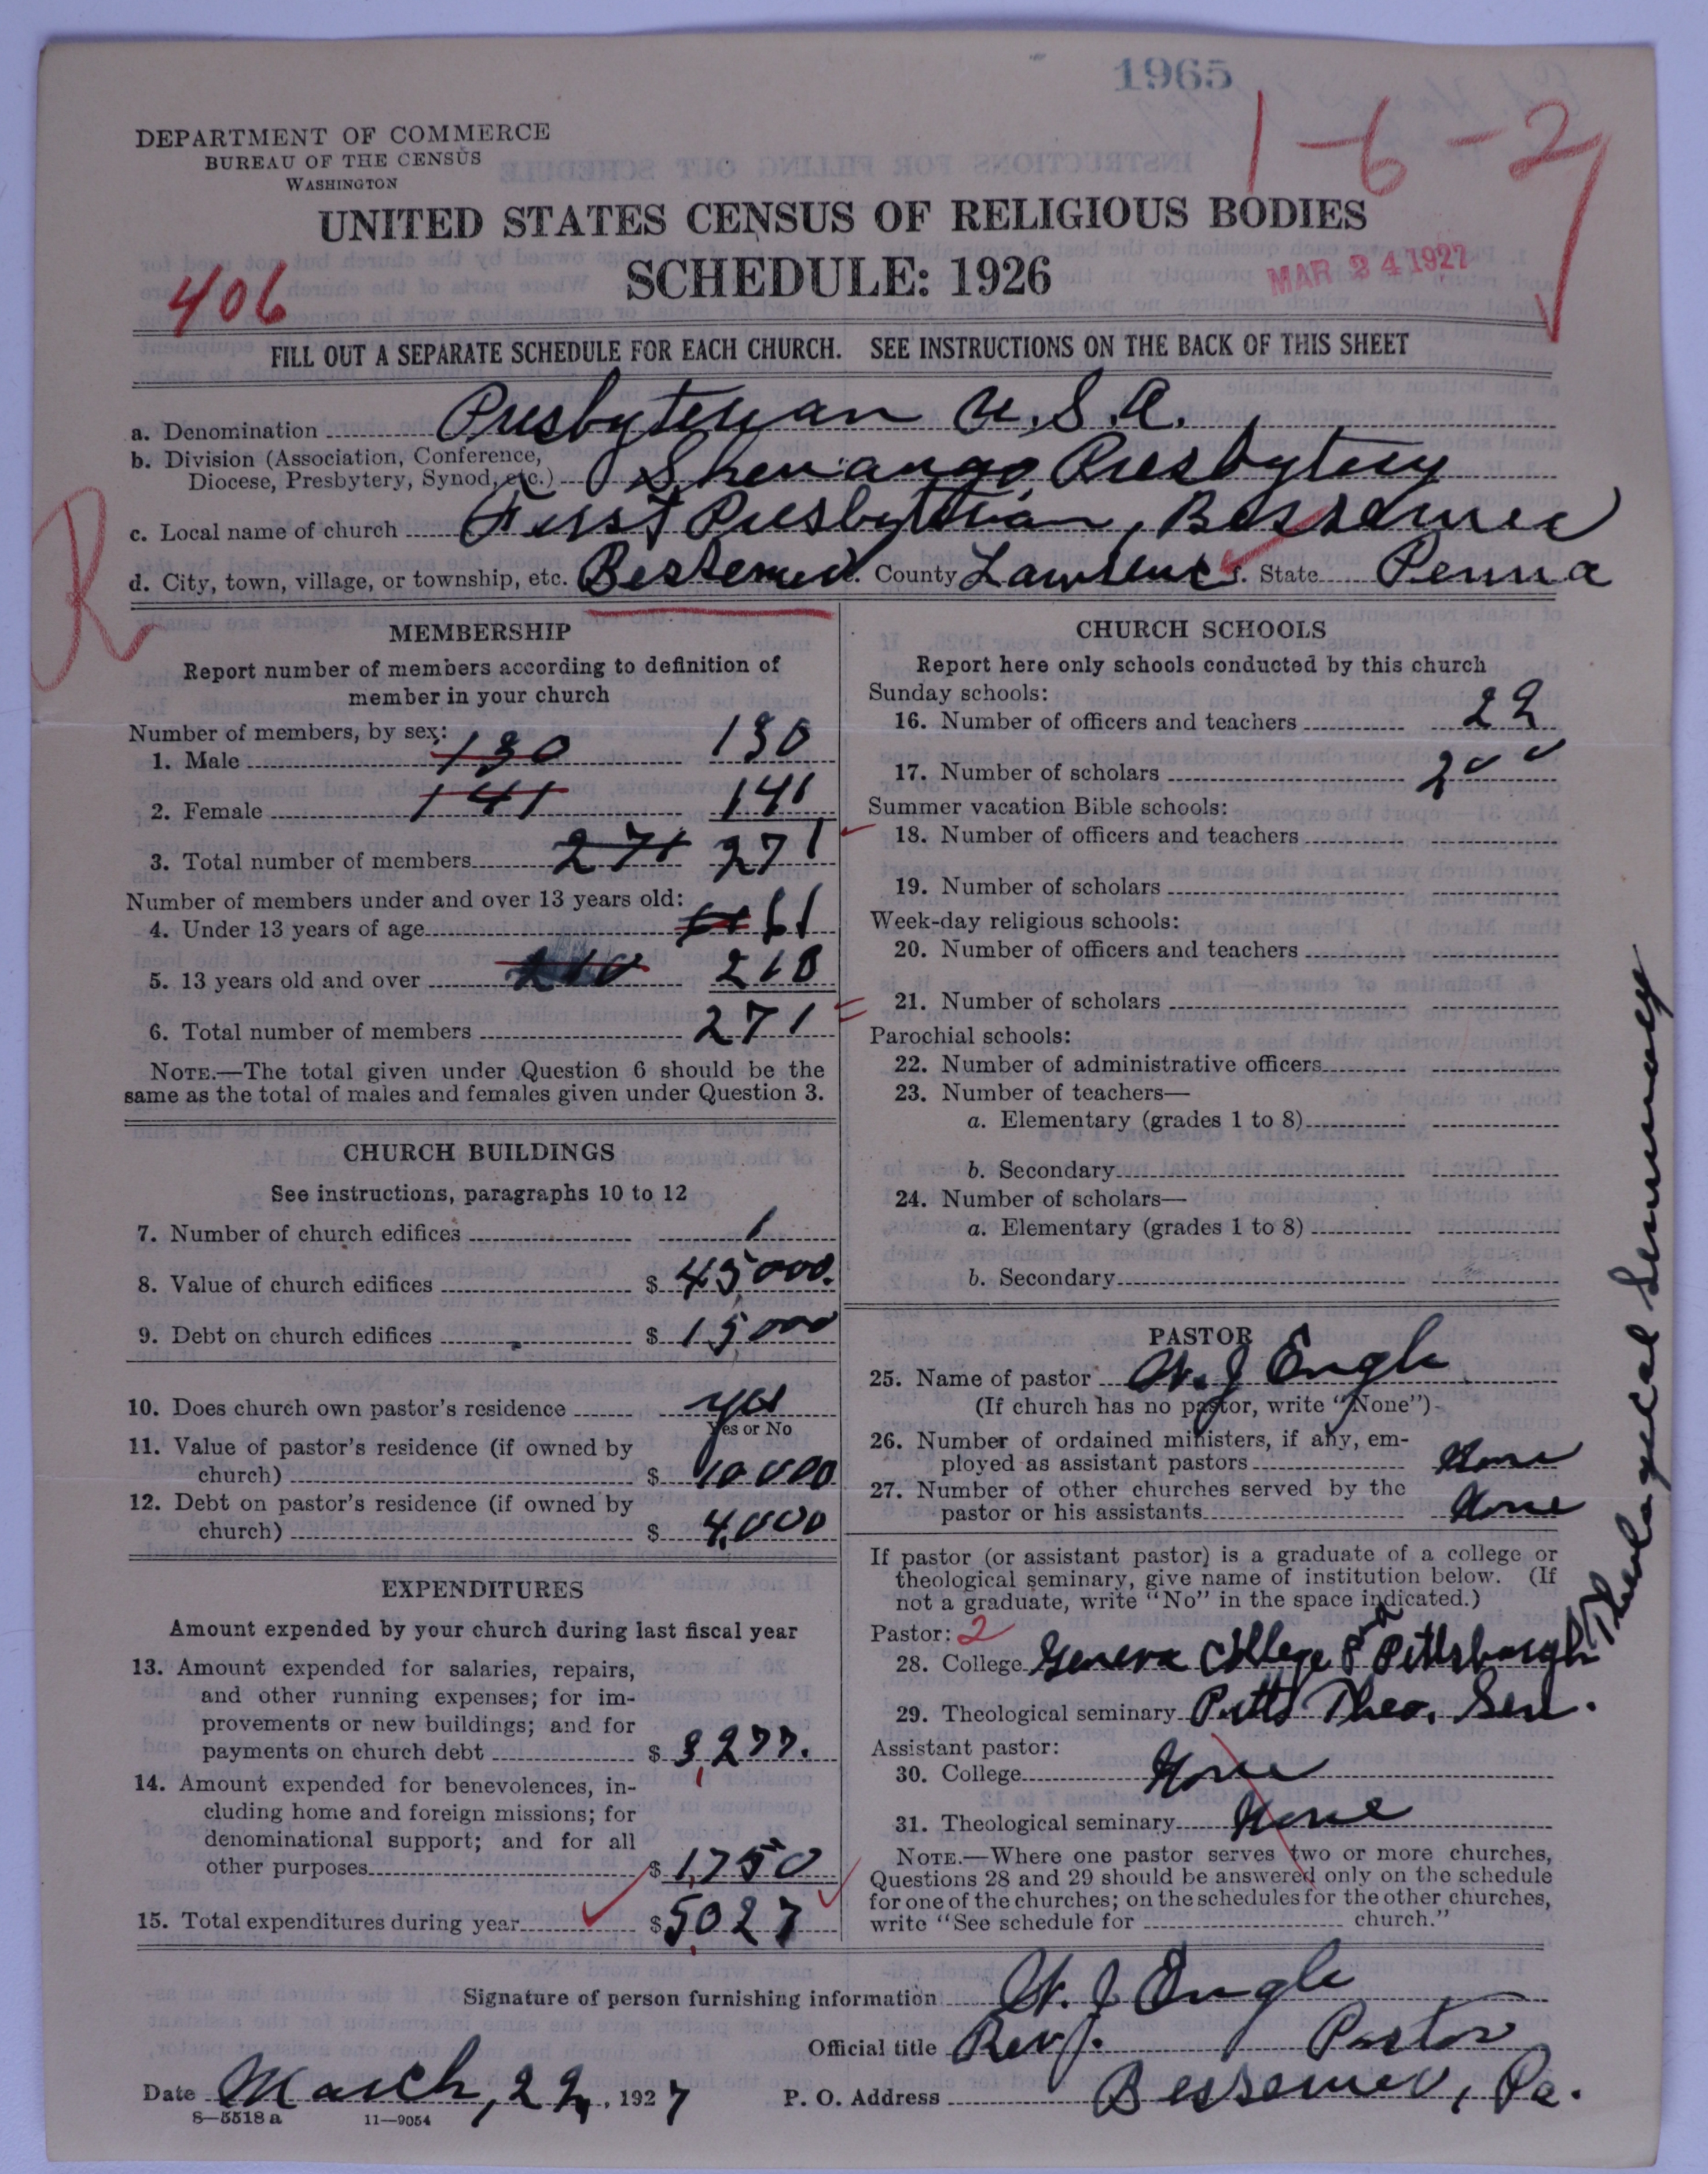 1965
1-6-2
DEPARTMENT OF COMMERCE
BUREAU OF THE CENSUS
WASHINGTON
UNITED STATES CENSUS OF RELIGIOUS BODIES
SCHEDULE: 1926
406
MAR 24 1927
FILL OUT A SEPARATE SCHEDULE FOR EACH CHURCH. SEE INSTRUCTIONS ON THE BACK OF THIS SHEET
a. Denomination Presbyterian U.S.A.
b. Division (Association, Conference,
Diocese, Presbytery, Synod, etc.) Shenango Presbytery
R
c. Local name of church First Presbyterian, Bessemer
d. City, town, village, or township, etc. Bessemer County Lawrence State Penna
MEMBERSHIP
Report number of members according to definition of
member in your church
Number of members, by sex:
1. Male 130 130
2. Female 141 141
3. Total number of members 271 271
Number of members under and over 13 years old:
4. Under 13 years of age 61
5. 13 years old and over 210 210
6. Total number of members 271
NOTE.—The total given under Question 6 should be the
same as the total of males and females given under Question 3.
CHURCH BUILDINGS
See instructions, paragraphs 10 to 12
7. Number of church edifices 1
8. Value of church edifices $ 45,000.
9. Debt on church edifices $ 15000
10. Does church own pastor's residence yes
Yes or No
11. Value of pastor's residence (if owned by
church) $ 10000
12. Debt on pastor's residence (if owned by
church) $ 4,000
EXPENDITURES
Amount expended by your church during last fiscal year
13. Amount expended for salaries, repairs,
and other running expenses; for im-
provements or new buildings; and for
payments on church debt $ 3,277.
14. Amount expended for benevolences, in-
cluding home and foreign missions; for
denominational support; and for all
other purposes $ 1,750
15. Total expenditures during year $ 5,027
CHURCH SCHOOLS
Report here only schools conducted by this church
Sunday schools:
16. Number of officers and teachers 22
17. Number of scholars 200
Summer vacation Bible schools:
18. Number of officers and teachers
19. Number of scholars
Week-day religious schools:
20. Number of officers and teachers
21. Number of scholars
Parochial schools:
22. Number of administrative officers
23. Number of teachers—
a. Elementary (grades 1 to 8)
b. Secondary
24. Number of scholars—
a. Elementary (grades 1 to 8)
b. Secondary
PASTOR
25. Name of pastor W. J Engle
(If church has no pastor, write "None")
26. Number of ordained ministers, if any, em-
ployed as assistant pastors None
27. Number of other churches served by the
pastor or his assistants None
If pastor (or assistant pastor) is a graduate of a college or
theological seminary, give name of institution below. (If
not a graduate, write "No" in the space indicated.)
Pastor: 2
28. College Geneva College Pa and Pittsburgh Theological Seminary
29. Theological seminary Pitts Theo. Sem.
Assistant pastor:
30. College None
31. Theological seminary None
NOTE.—Where one pastor serves two or more churches,
Questions 28 and 29 should be answered only on the schedule
for one of the churches; on the schedules for the other churches,
write "See schedule for church."
Signature of person furnishing information W. J Engle
Official title Rev. Pastor
Date March, 22, 1927 P. O. Address Bessemer, Pa.
8—5518 a 11—9054